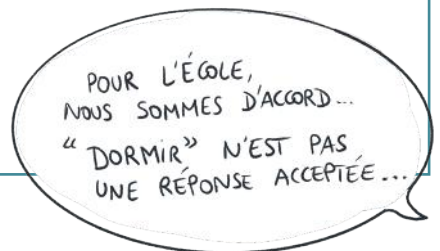 POUR L'ÉCOLE,
NOUS SOMMES D'ACCORD...
“DORMIR” N'EST PAS
UNE RÉPONSE ACCEPTÉE...